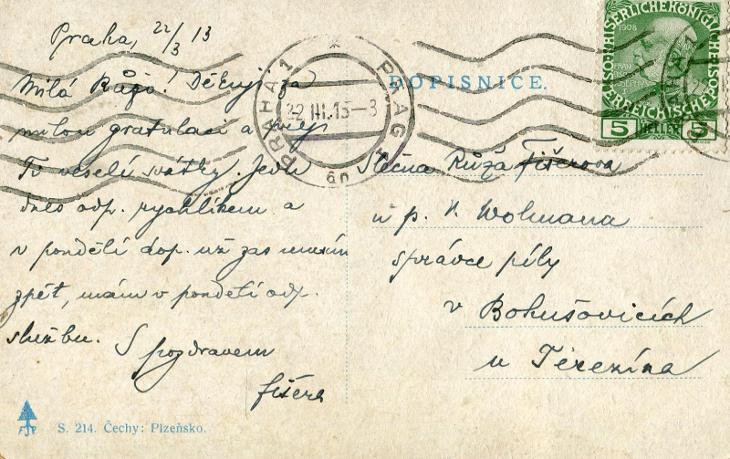 Praha, 22/3 13
Milá Růžo! Děkuji za
milou gratulaci a přeji
Ti veselé svátky. Jedu
dnes odp. rychlíkem a
v pondělí dop. už zas musím
zpět, mám v pondělí odp.
službu. S pozdravem
Fišera
S. 214. Čechy: Plzeňsko.
DOPISNICE.
PRAHA 1 PRAG 1
22 III. 13 - 3
1908
5 HELLER 5
Slečna Růža Fišerova
u p. V. Wolmana
správce pily
v Bohušovicích
u Terezína